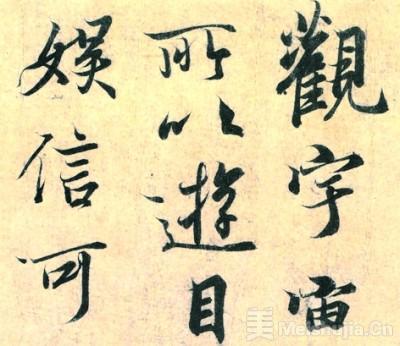 觀宇宙
所以遊目
娛信可
美 Meishujia.Cn